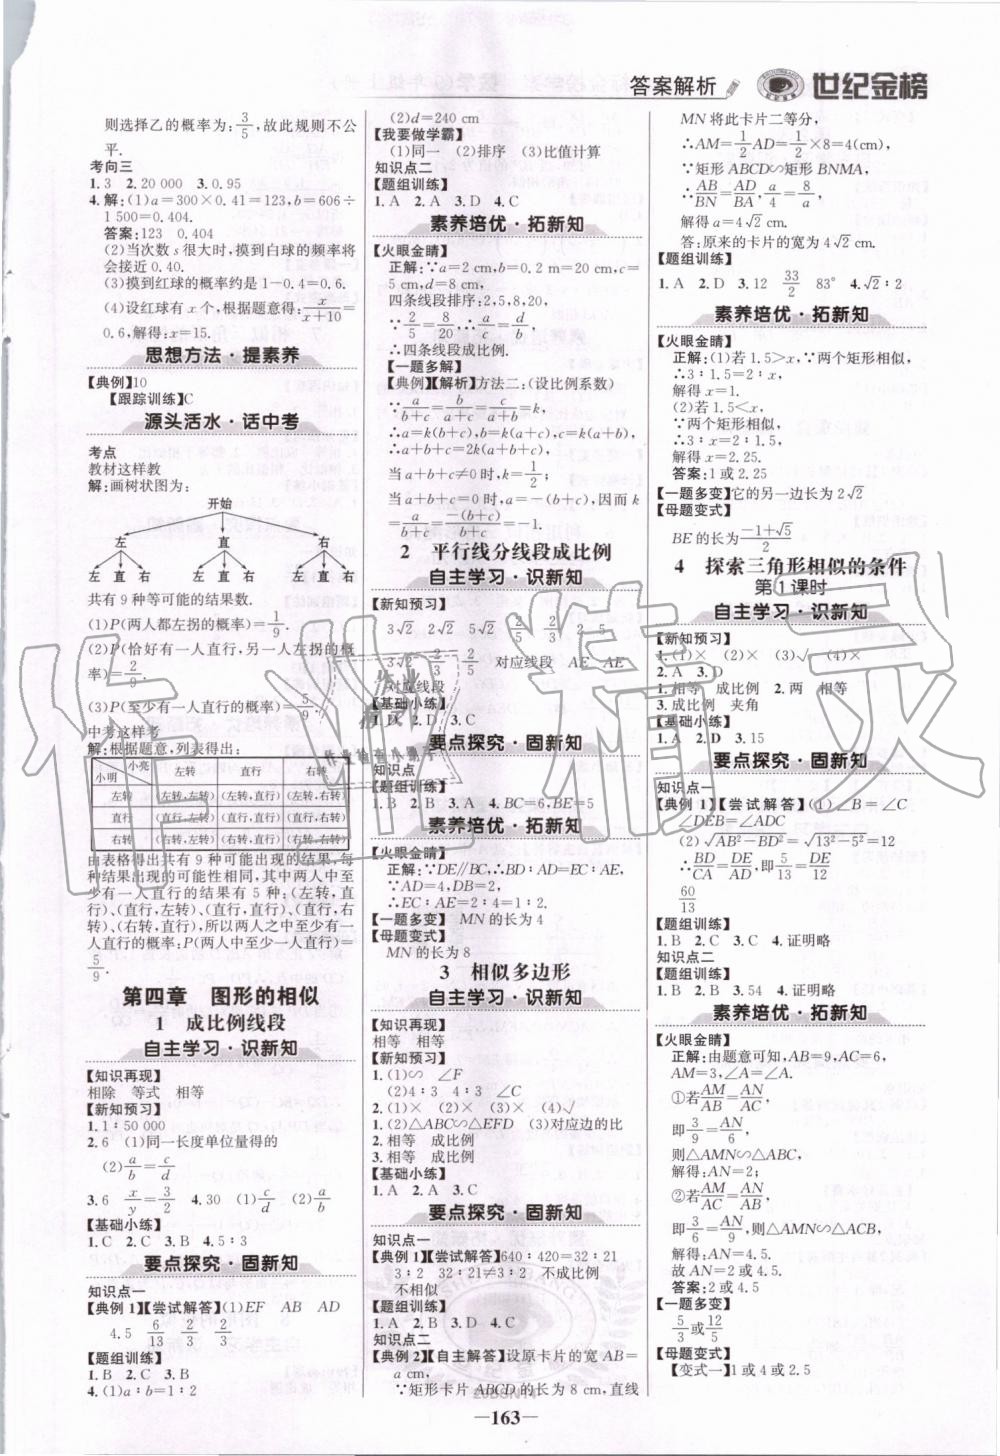 答案解析
世纪金榜
则选择乙的概率为:3/5,故此规则不公
平.
考向三
1. 3 2. 20 000 3. 0.95
4. 解:(1)a=300×0.41=123,b=606÷
1 500=0.404.
答案:123 0.404
(2)当次数 s 很大时,摸到白球的频率将
会接近 0.40.
(3)摸到红球的概率约是 1-0.4=0.6.
(4)设红球有 x 个,根据题意得:x/(x+10)=
0.6,解得:x=15.
思想方法·提素养
【典例】10
【跟踪训练】C
源头活水·话中考
考点
教材这样教
解:画树状图为:
开始
左 直 右
左 直 右 左 直 右 左 直 右
共有 9 种等可能的结果数.
(1)P(两人都左拐的概率)=1/9.
(2)P(恰好有一人直行,另一人左拐的概
率)=2/9.
(3)P(至少有一人直行的概率)=5/9.
中考这样考
解:根据题意,列表得出:
小亮 小明 左转 直行 右转
左转 (左转,左转) (左转,直行) (左转,右转)
直行 (直行,左转) (直行,直行) (直行,右转)
右转 (右转,左转) (右转,直行) (右转,右转)
由表格得出共有 9 种可能出现的结果,每
种结果出现的可能性相同,其中两人中至
少一人直行的结果有 5 种:(左转,直
行)、(直行,左转)、(直行,直行)、(直行,右
转)、(右转,直行),所以两人之中至少有一
人直行的概率:P(两人中至少一人直行)=
5/9.
第四章 图形的相似
1 成比例线段
自主学习·识新知
【知识再现】
相除 等式 相等
【新知预习】
1. 1∶50 000
2. 6 (1)同一长度单位量得的
(2)a/b=c/d
3. 6 x/y=2/3 4. 30 (1)c/d (2)a/b
【基础小练】
1. C 2. C 3. B 4. 5∶3
要点探究·固新知
知识点一
【典例 1】【尝试解答】(1)EF AB AD
4.5 6/13 2/3 2/3
【题组训练】
1. B 2. C 3. B
4. (1)a∶b=1∶2
(2)d=240 cm
【我要做学霸】
(1)同一 (2)排序 (3)比值计算
知识点二
【题组训练】
1. A 2. A 3. D 4. C
素养培优·拓新知
【火眼金睛】
正解:∵a=2 cm,b=0.2 m=20 cm,c=
5 cm,d=8 cm,
四条线段排序:2,5,8,20,
∵2/5=8/20∴a/c=d/b,
∴四条线段成比例.
【一题多解】
【典例】【解析】方法二:(设比例系数)
∵a/(b+c)=b/(a+c)=c/(a+b)=k,
∴a=k(b+c),b=k(a+c),c=k(a+b),
∴a+b+c=2k(a+b+c),
当 a+b+c≠0 时,k=1/2;
当 a+b+c=0 时,a=-(b+c),因而 k=
a/(b+c)=-(b+c)/(b+c)=-1.
2 平行线分线段成比例
自主学习·识新知
【新知预习】
3√2 2√2 5√2 2/5 2/3 2 5
3√2 2/3 2/3 2/5 对应线段 AE AE
对应线段
【基础小练】
1. D 2. D 3. C
要点探究·固新知
知识点
【题组训练】
1. B 2. B 3. A 4. BC=6,BE=5
素养培优·拓新知
【火眼金睛】
正解:∵DE∥BC,∴BD∶AD=EC∶AE,
∵AD=4,DB=2,
∴EC∶AE=2∶4=1∶2.
【一题多变】 MN 的长为 4
【母题变式】
MN 的长为 8
3 相似多边形
自主学习·识新知
【知识再现】
相等 相等
【新知预习】
1. (1)∽ ∠F
(2)4∶3 4∶3 ∠C
2. (1)× (2)× (3)× (4)√
1. (2)△ABC∽△EFD (3)对应边的比
2. 相等 成比例
3. 相等 成比例
【基础小练】
1. A 2. A 3. C
要点探究·固新知
知识点一
【典例 1】【尝试解答】640∶420=32∶21
3∶2 32∶21≠3∶2 不成比例
不相似
【题组训练】
1. A 2. B 3. D 4. B
知识点二
【典例 2】【自主解答】设原卡片的宽 AB=
a cm,
∵矩形卡片 ABCD 的长为 8 cm,直线
MN 将此卡片二等分,
∴AM=1/2AD=1/2×8=4(cm),
∵矩形 ABCD∽矩形 BNMA,
∴AB/BN=AD/BA,a/4=8/a,
解得 a=4√2 cm.
答:原来的卡片的宽为 4√2 cm.
【题组训练】
1. A 2. D 3. 12 33/2 83° 4. √2∶2
素养培优·拓新知
【火眼金睛】
正解:(1)若 1.5>x,∵两个矩形相似,
∴3∶1.5=2∶x,
解得 x=1.
(2)若 1.5<x,
∵两个矩形相似,
∴3∶x=2∶1.5,
解得 x=2.25.
答案:1 或 2.25
【一题多变】它的另一边长为 2√2
【母题变式】
BE 的长为(-1+√5)/2
4 探索三角形相似的条件
第 1 课时
自主学习·识新知
【新知预习】
1. (1)× (2)× (3)√ (4)×
2. A 3. D
1. 相等 成比例 2. 两 相等
3. 成比例 夹角
【基础小练】
1. A 2. D 3. 15
要点探究·固新知
知识点一
【典例 1】【尝试解答】(1)∠B=∠C
∠DEB=∠ADC
(2)√(AB²-BD²)=√(13²-5²)=12
∴BD/CA=DE/AD,即5/13=DE/12
60/13
【题组训练】
1. B 2. C 3. C 4. 证明略
知识点二
【题组训练】
1. B 2. B 3. 54 4. 证明略
素养培优·拓新知
【火眼金睛】
正解:由题意可知,AB=9,AC=6,
AM=3,∠A=∠A.
①若AM/AB=AN/AC,
即3/9=AN/6,
则△AMN∽△ABC,
解得:AN=2;
②若AM/AC=AN/AB,
即3/6=AN/9,则△AMN∽△ACB,
解得:AN=4.5.
故 AN=2 或 4.5.
答案:2 或 4.5
【一题多变】
5/3或12/5
【母题变式】
【变式一】1 或 4 或 2.5
—163—
作业精灵